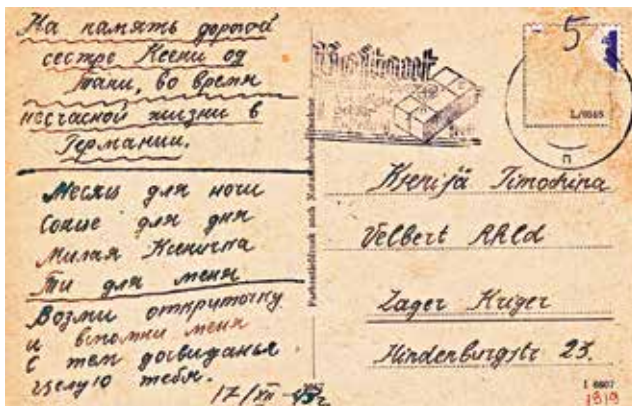 На память дорогой
сестре Ксени од
Тани, во время
несчасной жизни в
Германии.
Месяц для ночи
Сонце для дня
Милая Ксеничка
Ти для меня
Возми откриточку
и вспомни меня
С тем досвиданья
целую тебя.
17/XII
5
L/0505
Ksenijä Timoshina
Velbert Rhld
Lager Kriger
Hindenburgstr 23.
I 6607
1919